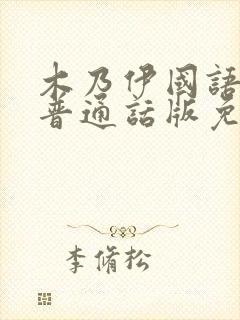 木乃伊國語
普通話版免
李脩松